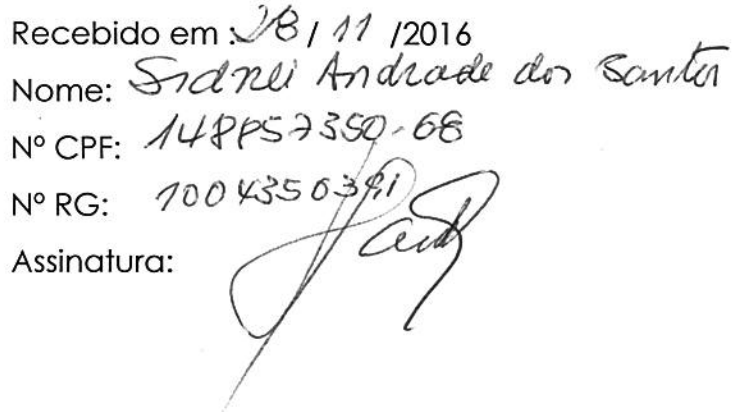 Recebido em : 28 / 11 /2016
Nome: Sidnei Andrade dos Santos
Nº CPF: 148857350-68
Nº RG: 1004350391
Assinatura: